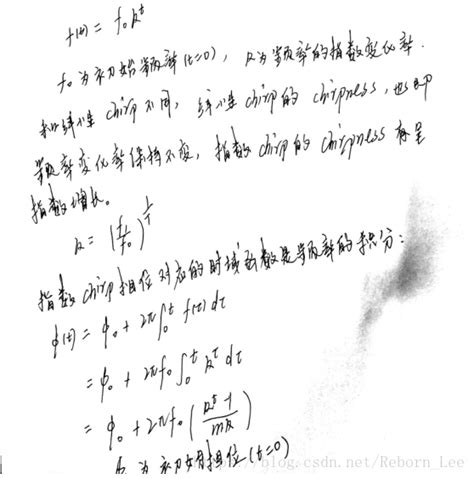 f(t) = f₀ k^t
f₀ 为初始频率 (t=0), k 为频率的指数变化率.
和线性 chirp 不同, 线性 chirp 的 chirpness, 也即
频率变化率保持不变, 指数 chirp 的 chirpness 存呈
指数增长。
k = (f₁/f₀)^(1/T)
指数 chirp 相位对应的时域函数是频率的积分:
φ(t) = φ₀ + 2π∫₀^t f(τ) dτ
= φ₀ + 2πf₀ ∫₀^t k^τ dτ
= φ₀ + 2πf₀ ( (k^t - 1) / ln k )
φ₀ 为初始相位 (t=0)
blog.csdn.net/Reborn_Lee